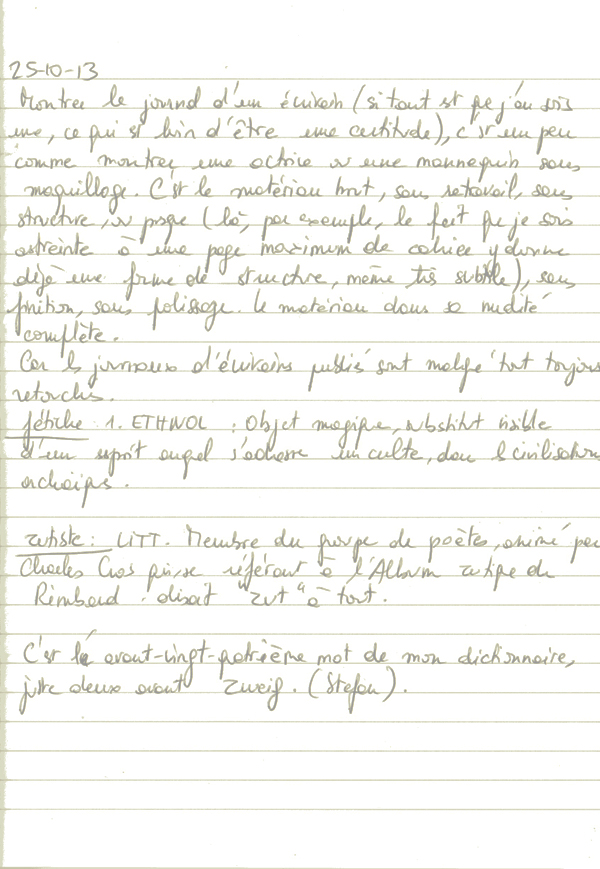 25-10-13
Montrer le journal d'un écrivain (si tant est que j'en sois
une, ce qui est loin d'être une certitude), c'est un peu
comme montrer une actrice ou une mannequin sans
maquillage. C'est le matériau brut, sans retravail, sans
structure, ou presque (là, par exemple, le fait que je sois
astreinte à une page maximum de cahier y donne
déjà une forme de structure, même très subtile), sans
finition, sans polissage. Le matériau dans sa nudité
complète.
Car les journaux d'écrivains publiés sont malgré tout toujours
retouchés.
fétiche 1. ETHNOL : Objet magique, substitut visible
d'un esprit auquel s'adresse un culte, dans les civilisations
archaïques.
zutiste : LITT. Membre du groupe de poètes, animé par
Charles Cros qui, se référant à l'Album zutique de
Rimbaud disait "zut" à tout.
C'est le avant-vingt-quatrième mot de mon dictionnaire,
juste deux avant Zweig. (Stefan).